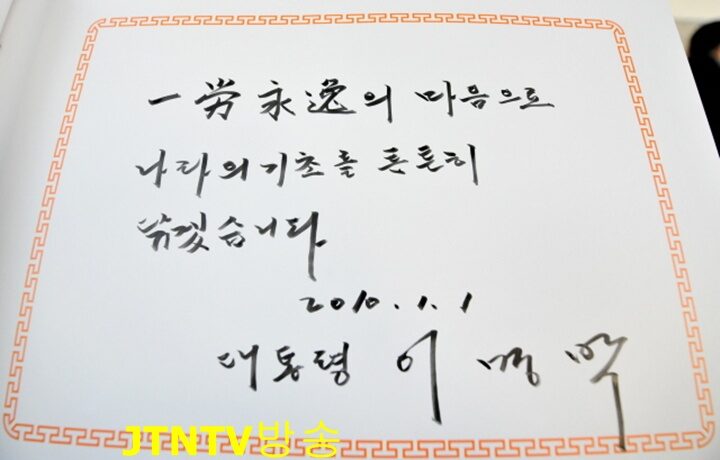 一勞永逸의 마음으로
나라의 기초를 튼튼히
닦겠습니다
2010.1.1
대통령 이명박
JTNTV방송